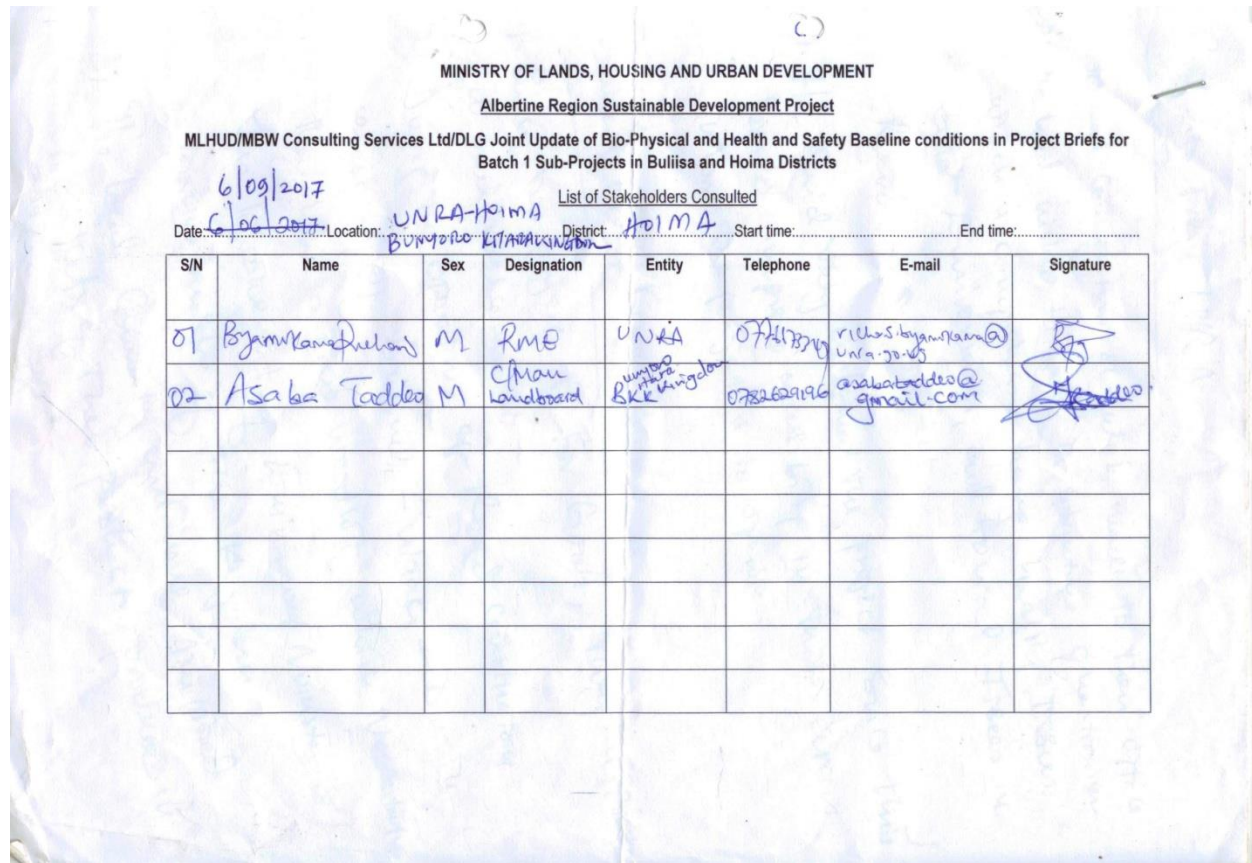 MINISTRY OF LANDS, HOUSING AND URBAN DEVELOPMENT
Albertine Region Sustainable Development Project
MLHUD/MBW Consulting Services Ltd/DLG Joint Update of Bio-Physical and Health and Safety Baseline conditions in Project Briefs for
Batch 1 Sub-Projects in Buliisa and Hoima Districts
6/09/2017
List of Stakeholders Consulted
Date: 6/06/2017 Location: UNRA-HOIMA District: HOIMA Start time: End time:
BUNYORO KITARA KINGDOM
S/N Name Sex Designation Entity Telephone E-mail Signature
01 Byamukama M RME UNRA
unra.go.ug
02 Asaba Taddeo M C/Man Landboard BKK Kingdom 0782629196 asabataddeo@
gmail.com